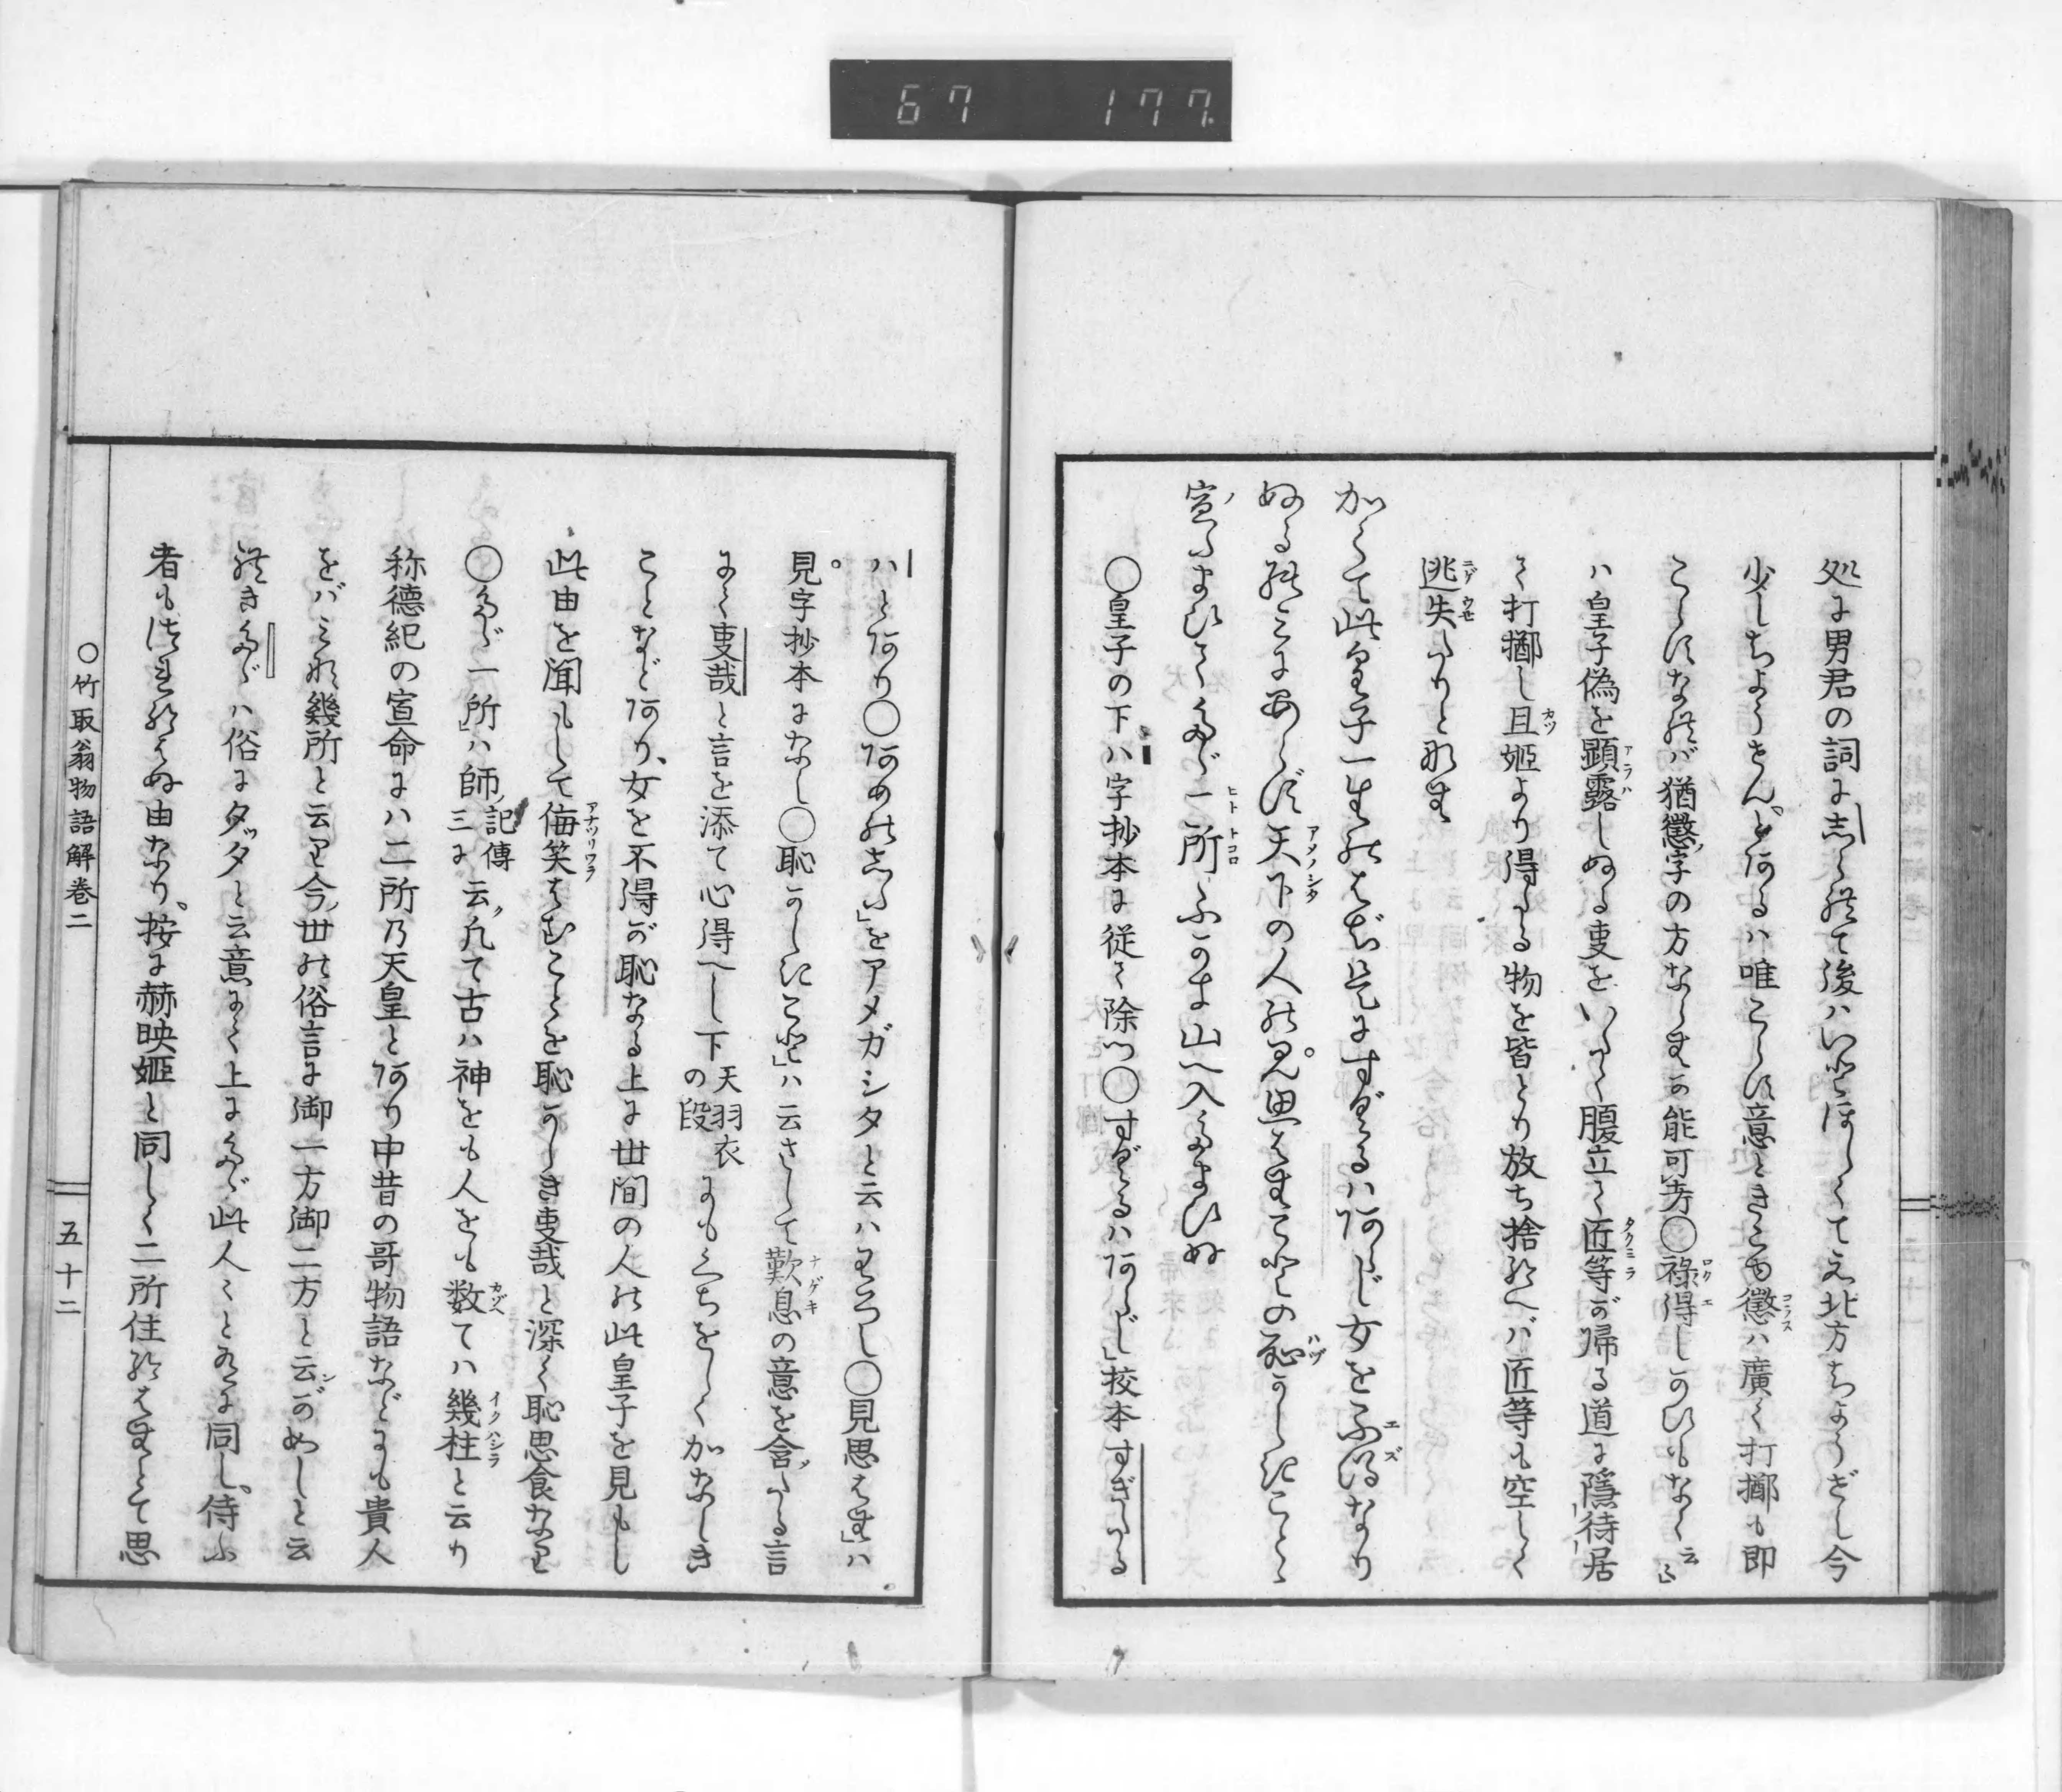 67 177
処に男君の詞にこらしめて後ハいとほしくて元北方ちようぎし今
少しちようせんとあるハ唯こらす意ときこゆ懲ハ廣く打擲も即
こらすなれバ猶懲ノ字の方ならむか能可考○祿得しかひもなく云々」
ハ皇子偽を顕露しぬる事をいたく腹立て匠等が帰る道に隠待居
て打擲し且姫より得たる物を皆とり放ち捨玉へバ匠等も空しく
逃失たりとなむ
かくて此皇子一生のはぢ是にすぐるハあらじ女をえ得ずなり
ぬるのミにあらず天下の人の見思はむことの恥かしきことゝ
宣ひてたゞ一所ふかき山へ入たまひぬ
○皇子の下ハ字抄本に従て除つ○すぐるハあらじ」校本すぎたる
ハとあり○あめのした」をアメガシタと云ハわろし○見思はむ」ハ
見字抄本になし○恥かしきこと」ハ云さして歎息の意を含たる言
にて事哉と言を添て心得へし下天羽衣の段にもみちをしくかなしき
ことなどあり、女を不得が恥なる上に世間の人の此皇子を見もし
此由を聞もして侮笑はむことを恥かしき事哉と深く恥思食なり
○たゞ一所」ハ師ノ記傳三に云ク凡て古ハ神をも人をも数てハ幾柱と云り
称德紀の宣命にハ二所乃天皇とあり中昔の哥物語などにも貴人
をバミな幾所と云り今ノ世の俗言に御一方御二方と云ンがめしと云
べきたゞハ俗にタッタと云意にて上にたゞ此人々と有に同し侍ふ
者もつれ玉はぬ由なり。按に赫映姫と同しく二所住玉はむとて思
○竹取翁物語解卷二
五十二